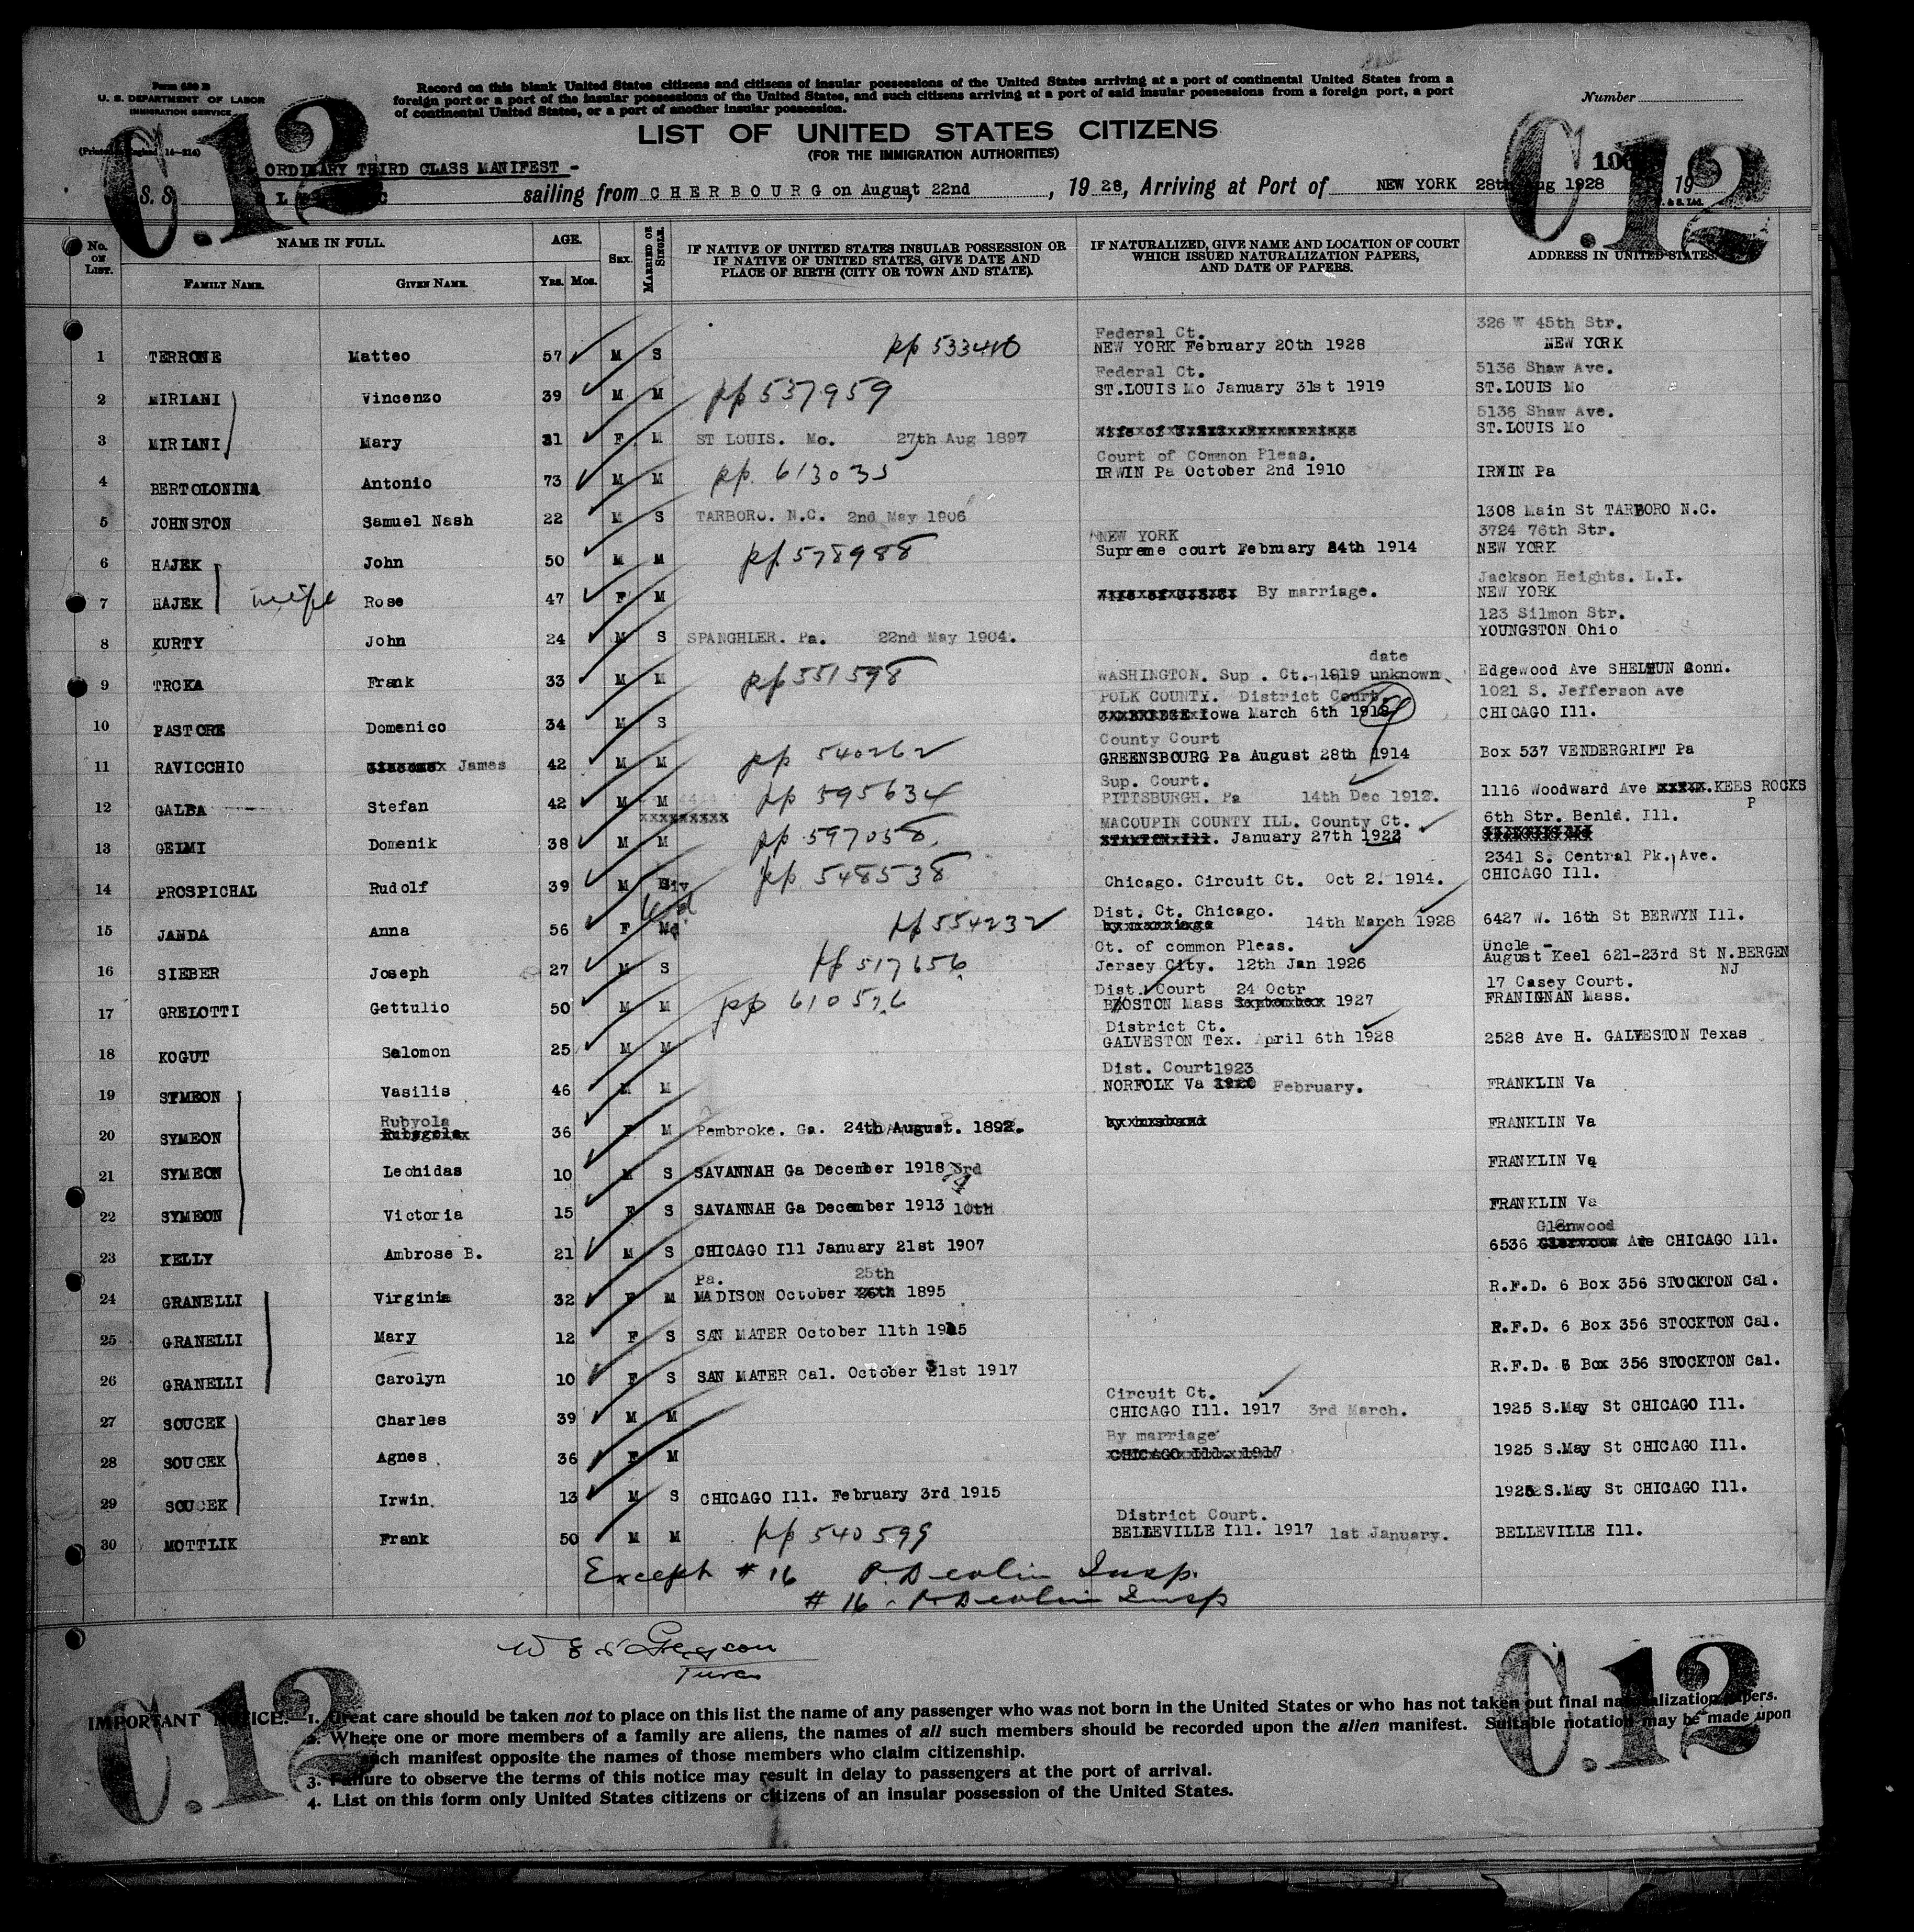 Form 630 B
U. S. DEPARTMENT OF LABOR
IMMIGRATION SERVICE
Record on this blank United States citizens and citizens of insular possessions of the United States arriving at a port of continental United States from a
foreign port or a port of the insular possessions of the United States, and such citizens arriving at a port of said insular possessions from a foreign port, a port
of continental United States, or a port of another insular possession.
Number
C.12 C.12
LIST OF UNITED STATES CITIZENS
(FOR THE IMMIGRATION AUTHORITIES)
ORDINARY THIRD CLASS MANIFEST -
S. S. sailing from CHERBOURG on August, 22nd, 1928, Arriving at Port of NEW YORK 28th Aug 1928 19
No. on List. NAME IN FULL. AGE. SEX. MARRIED OR SINGLE. IF NATIVE OF UNITED STATES INSULAR POSSESSION OR IF NATIVE OF UNITED STATES, GIVE DATE AND PLACE OF BIRTH (CITY OR TOWN AND STATE). IF NATURALIZED, GIVE NAME AND LOCATION OF COURT WHICH ISSUED NATURALIZATION PAPERS, AND DATE OF PAPERS. ADDRESS IN UNITED STATES.
FAMILY NAME. GIVEN NAME. YRS. MOS.
Federal Ct. 326 W 45th Str.
1 TERRONE Matteo 57 M S pp 533410 NEW YORK February 20th 1928 NEW YORK
Federal Ct. 5136 Shaw Ave.
2 MIRIANI Vincenzo 39 M M pp 537959 ST.LOUIS Mo January 31st 1919 ST.LOUIS Mo
5136 Shaw Ave.
3 MIRIANI Mary 31 F M ST LOUIS. Mo. 27th Aug 1897 ST.LOUIS Mo
Court of Common Pleas.
4 BERTOLONINA Antonio 73 M M pp. 613035 IRWIN Pa October 2nd 1910 IRWIN Pa
5 JOHNSTON Samuel Nash 22 M S TARBORO. N.C. 2nd May 1906 1308 Main St TARBORO N.C.
NEW YORK 3724 76th Str.
6 HAJEK John 50 M M pp. 578988 Supreme court February 24th 1914 NEW YORK
Jackson Heights. L.I.
7 HAJEK wife Rose 47 F M By marriage. NEW YORK
123 Silmon Str.
8 KURTY John 24 M S SPANGHLER. Pa. 22nd May 1904. YOUNGSTON Ohio
date
9 TRCKA Frank 33 M M pp 551598 WASHINGTON. Sup. Ct. 1919 unknown Edgewood Ave SHELTUN Conn.
POLK COUNTY. District Court. 1021 S. Jefferson Ave
10 PASTORE Domenico 34 M S Iowa March 6th 1918 CHICAGO Ill.
County Court
11 RAVICCHIO James 42 M M pp 540262 GREENSBOURG Pa August 28th 1914 Box 537 VENDERGRIFT Pa
Sup. Court.
12 GALBA Stefan 42 M M pp 595634 PITTSBURGH. Pa 14th Dec 1912. 1116 Woodward Ave KEES ROCKS
P
MACOUPIN COUNTY ILL. County Ct. 6th Str. Benld. Ill.
13 GEIMI Domenik 38 M M pp 597058. January 27th 1923
2341 S. Central Pk. Ave.
14 PROSPICHAL Rudolf 39 M Div pp. 548538 Chicago. Circuit Ct. Oct 2. 1914. CHICAGO Ill.
Dist. Ct. Chicago.
15 JANDA Anna 56 F Wd pp 554232 14th March 1928 6427 W. 16th St BERWYN Ill.
Ct. of common Pleas. Uncle -
16 SIEBER Joseph 27 M S pp 517656 Jersey City. 12th Jan 1926 August Keel 621-23rd St N.BERGEN
NJ
Dist. Court 24 Octr 17 Casey Court.
17 GRELOTTI Gettulio 50 M M pp 610576 BOSTON Mass 1927 FRANINNAN Mass.
District Ct.
18 KOGUT Salomon 25 M M GALVESTON Tex. April 6th 1928 2528 Ave H. GALVESTON Texas
Dist. Court 1923
19 SYMEON Vasilis 46 M M NORFOLK Va February. FRANKLIN Va
20 SYMEON Rubyola 36 F M Pembroke. Ga. 24th August. 1892. FRANKLIN Va
21 SYMEON Leonidas 10 M S SAVANNAH Ga December 1918 3rd FRANKLIN Va
22 SYMEON Victoria 15 F S SAVANNAH Ga December 1913 10th FRANKLIN Va
Glenwood
23 KELLY Ambrose B. 21 M S CHICAGO Ill January 21st 1907 6536 Ave CHICAGO Ill.
Pa. 25th
24 GRANELLI Virginia 32 F M MADISON October 1895 R.F.D. 6 Box 356 STOCKTON Cal.
25 GRANELLI Mary 12 F S SAN MATER October 11th 1915 R.F.D. 6 Box 356 STOCKTON Cal.
26 GRANELLI Carolyn 10 F S SAN MATER Cal. October 31st 1917 R.F.D. 6 Box 356 STOCKTON Cal.
Circuit Ct.
27 SOUCEK Charles 39 M M CHICAGO Ill. 1917 3rd March. 1925 S.May St CHICAGO Ill.
By marriage
28 SOUCEK Agnes 36 F M CHICAGO Ill. 1917 1925 S.May St CHICAGO Ill.
29 SOUCEK Irwin. 13 M S CHICAGO Ill. February 3rd 1915 1925 S.May St CHICAGO Ill.
District Court.
30 MOTTLIK Frank 50 M M pp 540599 BELLEVILLE Ill. 1917 1st January. BELLEVILLE Ill.
Except # 16 P. Devlin Insp.
# 16 - P. Devlin Insp
C.12 C.12
IMPORTANT NOTICE.—1. Great care should be taken not to place on this list the name of any passenger who was not born in the United States or who has not taken out final naturalization papers.
2. Where one or more members of a family are aliens, the names of all such members should be recorded upon the alien manifest. Suitable notation may be made upon
such manifest opposite the names of those members who claim citizenship.
3. Failure to observe the terms of this notice may result in delay to passengers at the port of arrival.
4. List on this form only United States citizens or citizens of an insular possession of the United States.